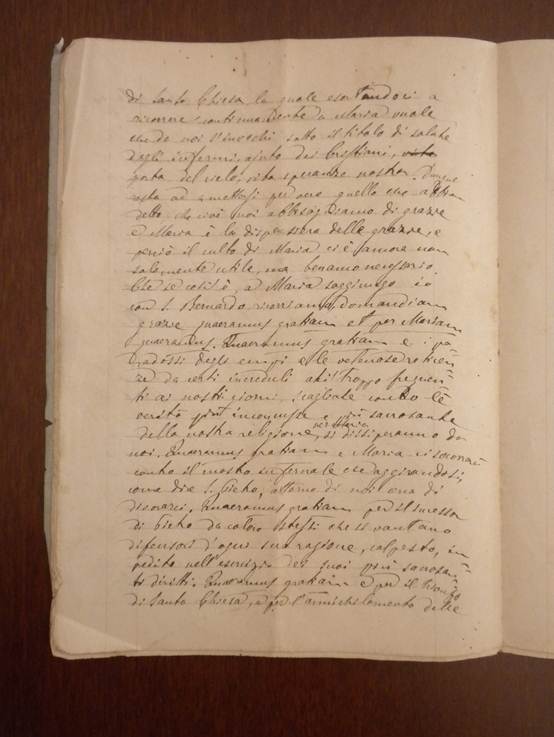 di Santa Chiesa la quale esortandoci a
ricorrere continuamente a Maria vuole
che da noi s'invochi sotto il titolo di salute
degli infermi, aiuto dei Cristiani,
porta del cielo, vita speranza nostra. Dunque
resta ad ammettersi per vero quello che
detto che noi abbisogniamo di grazie
e Maria è la dispensiera delle grazie, e
perciò il culto di Maria ci è amore non
solamente utile, ma benanco necessario.
Che se così è, a Maria soggiungo io
con S. Bernardo ricorriamo, domandiam
grazie quaeramus gratiam et per Mariam
quaeramus. Quaeramus gratiam e i pa-
radossi degli empi e le velenose
da certi increduli ahi! troppo frequen-
ti ai nostri giorni, scagliate contro le
verità più inconcusse e più sacrosante
della nostra religione, per Maria si disperderanno da
noi. Quaeramus gratiam e Maria ci soccorrerà
contro il mostro infernale che aggirandosi,
come dice S. Pietro, attorno di noi
divorarci. Quaeramus gratiam pel successor
di Pietro da coloro stessi che si vantano
difensori d'ogni ragione, calpesto, im-
pedito nell'esercizio dei suoi più sacrosan-
ti diritti. Quaeramus gratiam e per il trionfo
di Santa Chiesa, e per l'annichilamento delle